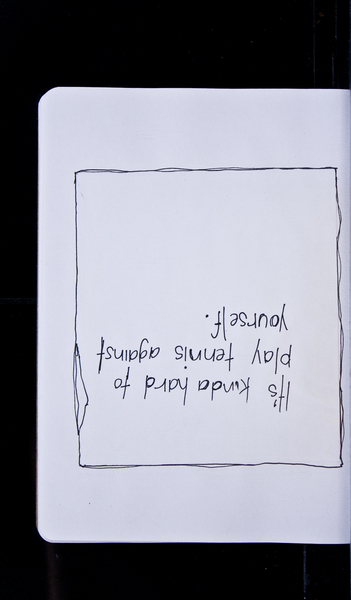 It's kinda hard to
play tennis against
yourself.